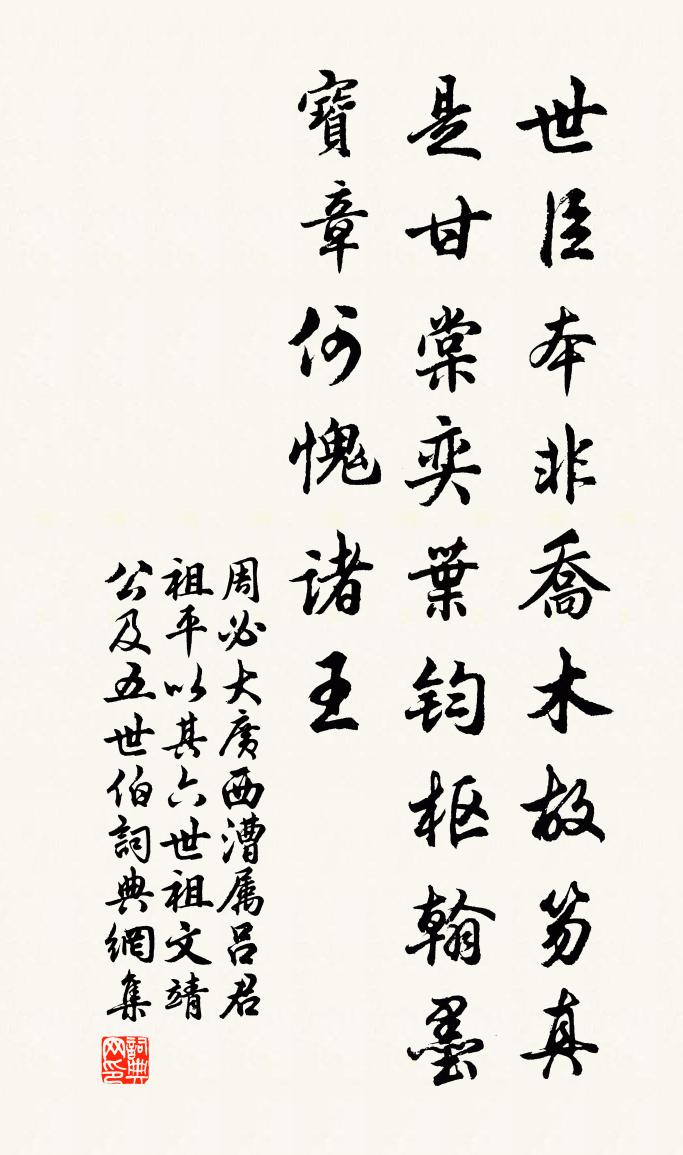 世臣本非喬木故笏真
是甘棠奕葉鈞枢翰墨
寶章何愧諸王
周必大廣西漕属吕君
祖平以其六世祖文靖
公及五世伯詞典網集
詞典网印